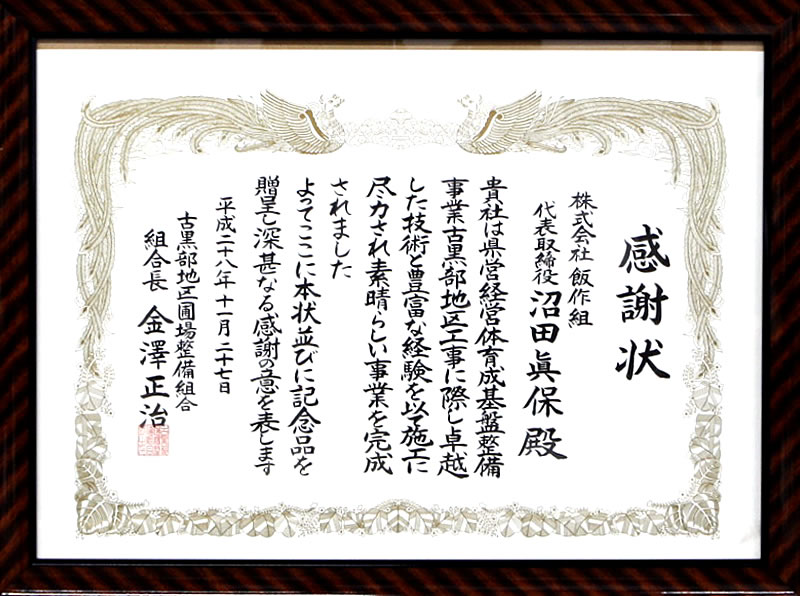 感謝状
株式会社 飯作組
代表取締役 沼田眞保 殿
貴社は県営経営体育成基盤整備
事業古黒部地区工事に際し卓越
した技術と豊富な経験を以て施工に
尽力され素晴らしい事業を完成
されました
よってここに本状並びに記念品を
贈呈し深甚なる感謝の意を表します
平成二十八年十一月二十七日
古黒部地区圃場整備組合
組合長 金澤正治